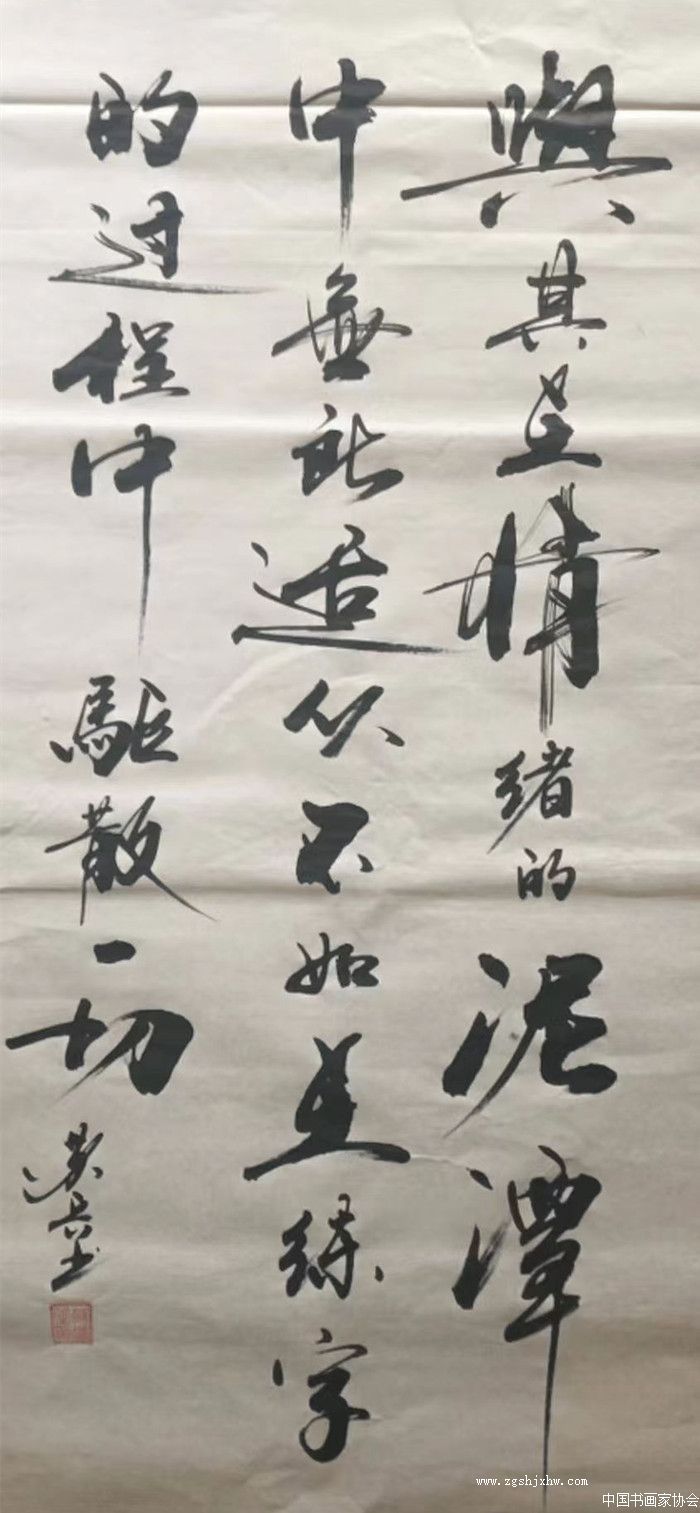 與其在情绪的泥潭
中無所适从不如在練字
的过程中驅散一切
www.zgshjxhw.com
中国书画家协会